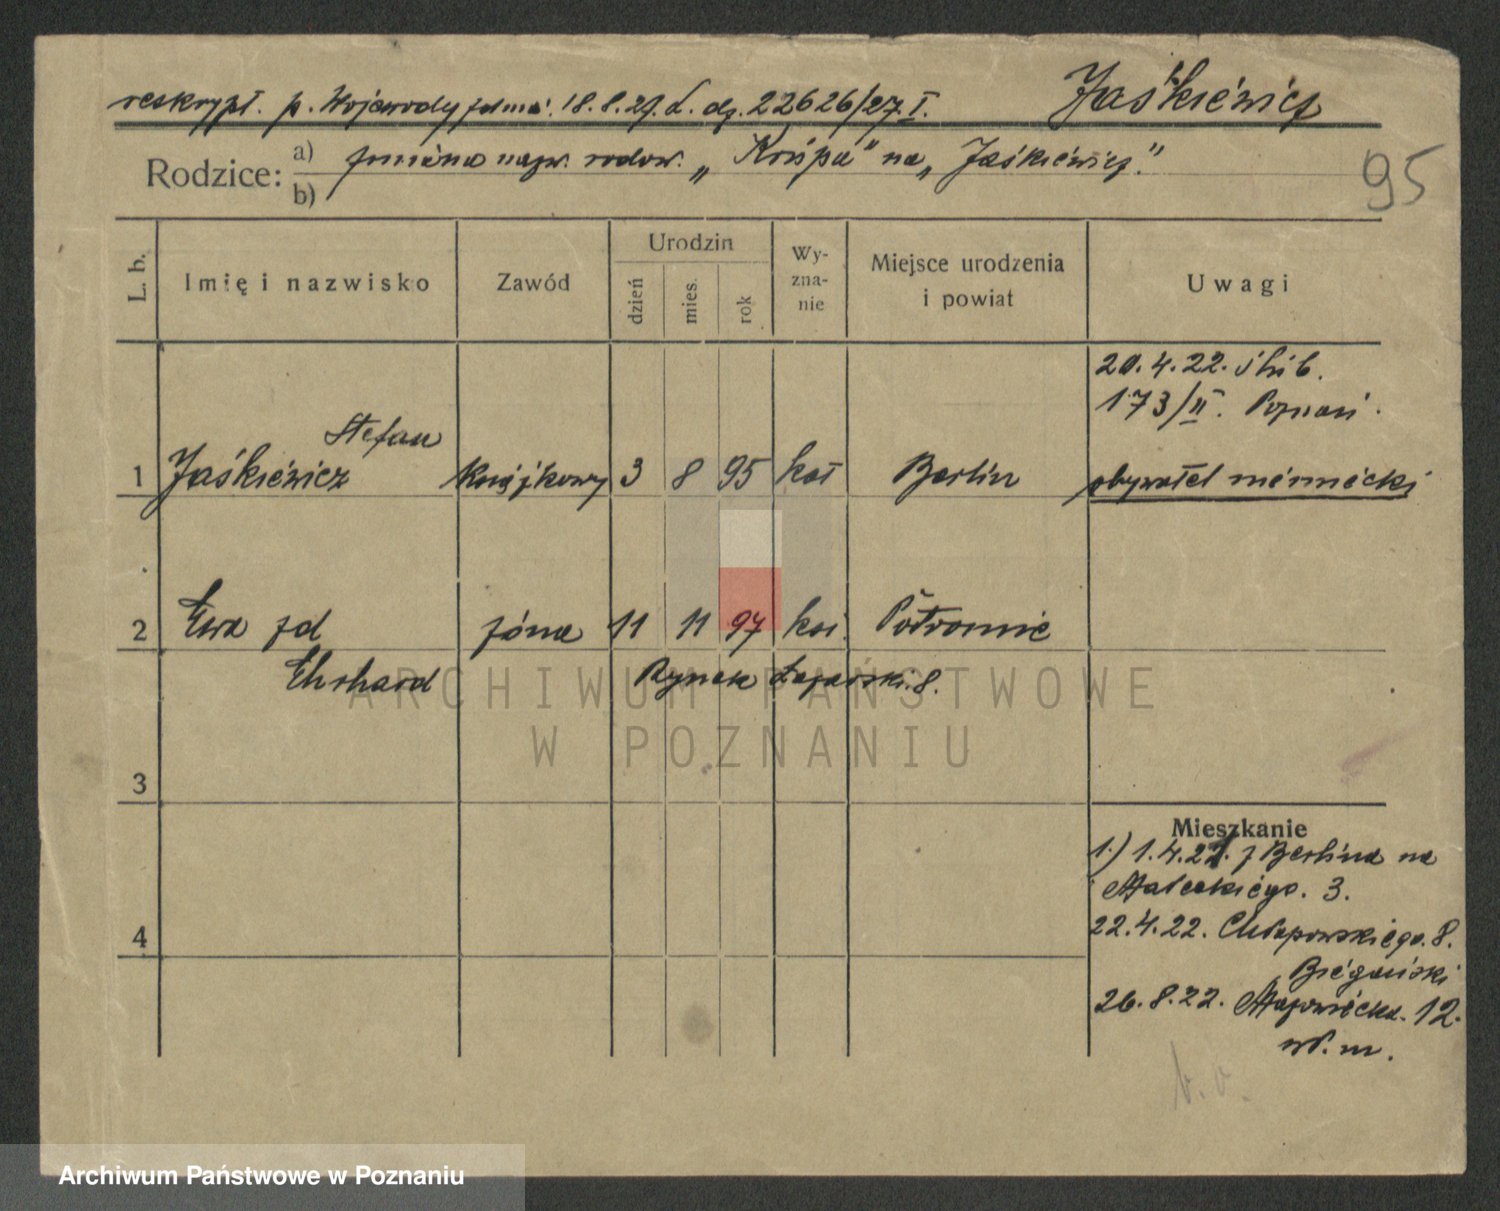 reskrypt. p. Wojewody z dnia 18.8.27. L. dz. 22626/27. I. Jaśkiewicz
Rodzice: a) zmiana nazw. rodow. „Kośpa" na „Jaśkiewicz."
b)
95
L. b. Imię i nazwisko Zawód Urodzin Wy-zna-nie Miejsce urodzenia i powiat Uwagi
dzień mies. rok
20.4.22. ślub.
173/II. Poznań.
Stefan
1 Jaśkiewicz książkowy 3 8 95 kat Berlin obywatel niemiecki
2 Ewa zd żona 11 11 97 kat.
Ehrhard Rynek Łazarski. 8.
ARCHIWUM PAŃSTWOWE
W POZNANIU
3
Mieszkanie
1.) 1.4.21. z Berlina na
Małeckiego. 3.
4
22.4.22. Chłapowskiego. 8.
Biegański
26.8.22. Mazowiecka. 12.
wł. m.
b. o.
Archiwum Państwowe w Poznaniu